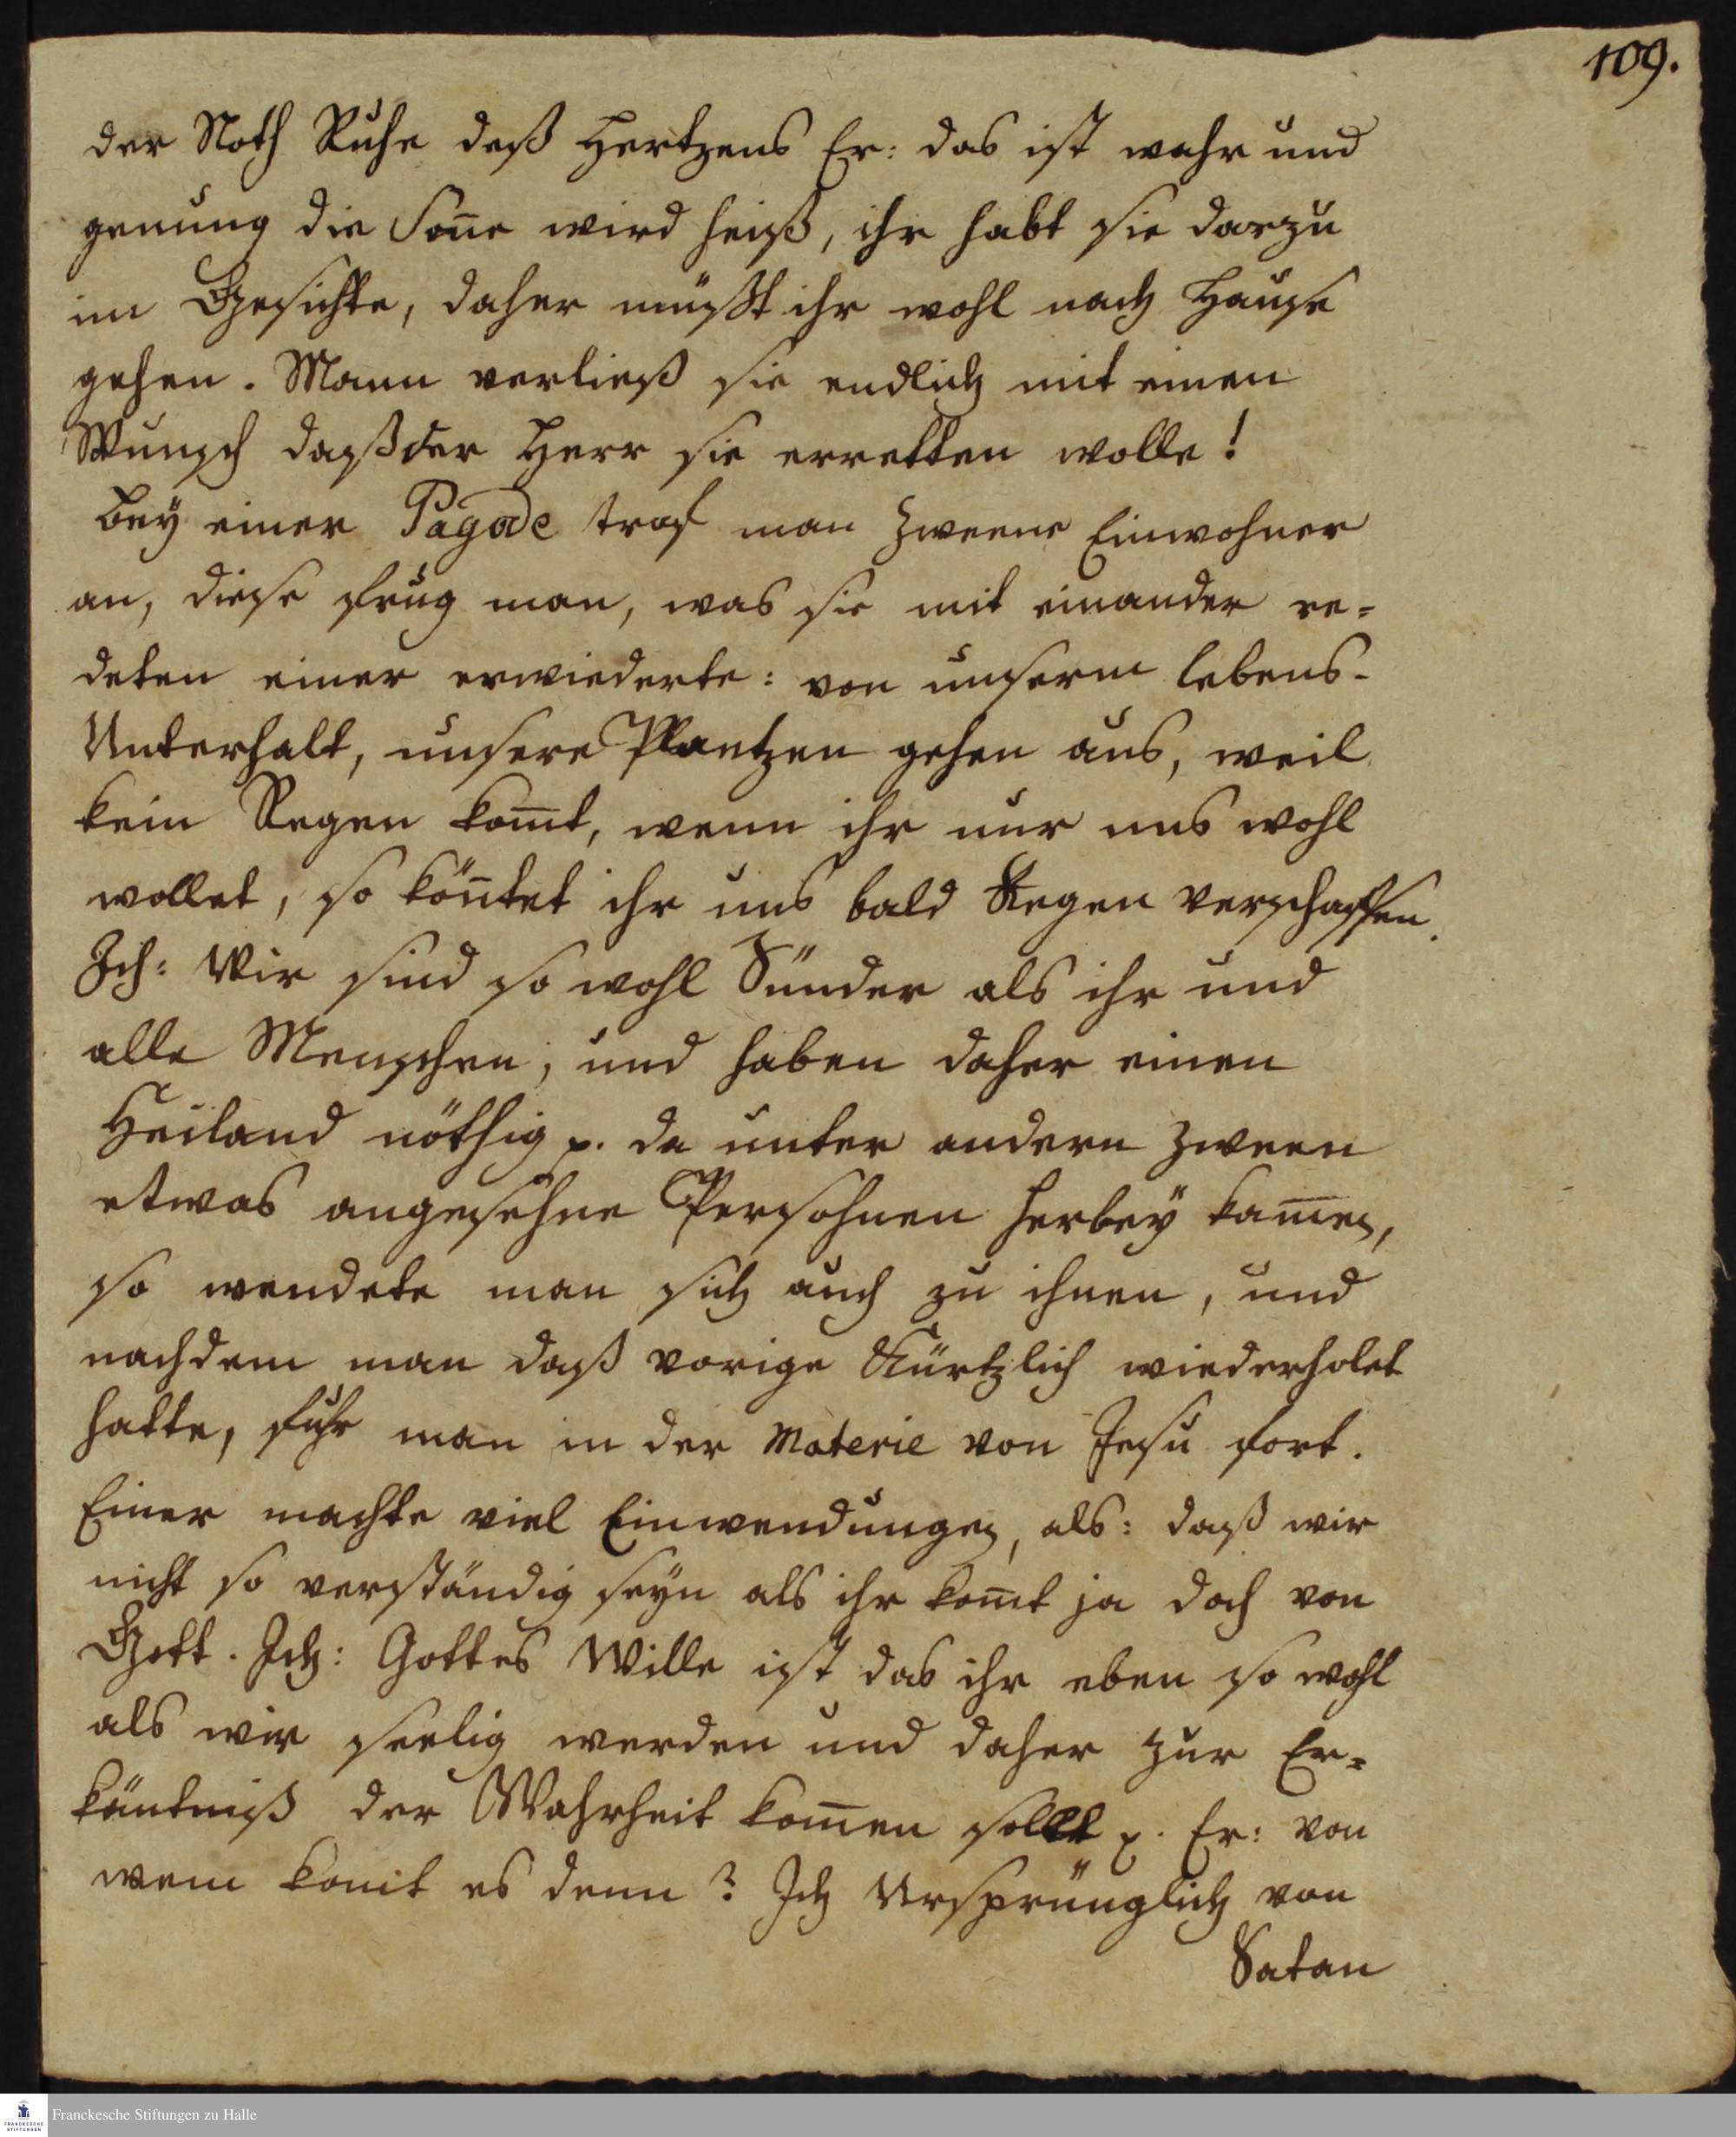 109.
der Noth Ruhe deß Hertzens Er: das ist wahr und
genung die Soñe wird heiß, ihr habt sie darzu
im Gesichte, daher müßt ihr wohl nach Hause
gehen. Mann verließ sie endlich mit einen
Wunsch daß der Herr sie erretten wolle!
Bey einer Pagode traf man zweene Einwohner
an, diese frug man, was sie mit einander re=
deten einer erwiederte: von unserm lebens-
Unterhalt, unsere Plantzen gehen aus, weil
kein Regen kom̄t, wenn ihr nur uns wohl
wollet, so kön̄tet ihr uns bald Regen verschaffen.
Ich: Wir sind so wohl Sünder als ihr und
alle Menschen, und haben daher einen
Heiland nöthig p. da unter andern zween
etwas angesehne Persohnen herbey kamen,
so wendete man sich auch zu ihnen, und
nachdem man daß vorige Kürtzlich wiederholet
hatte, fuhr man in der Materie von Jesu fort.
Einer machte viel Einwendungen, als: daß wir
nicht so verständig seyn als ihr kom̄t ja doch von
Gott. Ich: Gottes Wille ist das ihr eben so wohl
als wir seelig werden und daher zur Er=
käntniß der Wahrheit kom̄en sollt p. Er: von
wem kom̄t es denn? Ich Ursprünglich von
Satan
Franckesche Stiftungen zu Halle
FRANCKESCHE
STIFTUNGEN